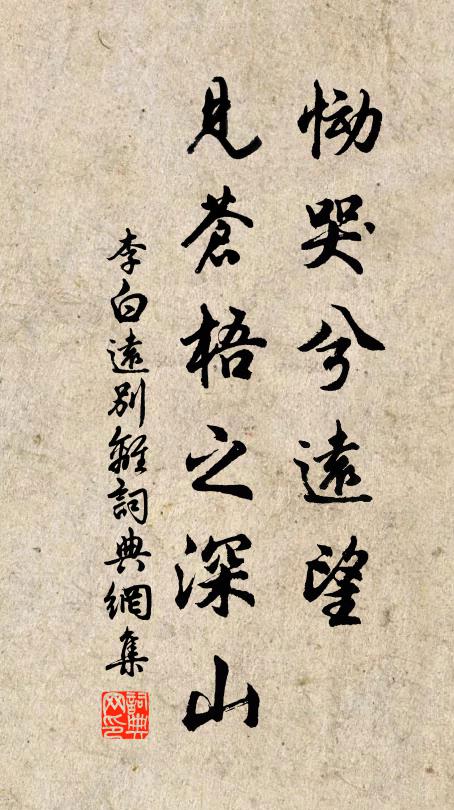 慟哭兮遠望
見蒼梧之深山
李白遠別離詞典網集
詞典
网印